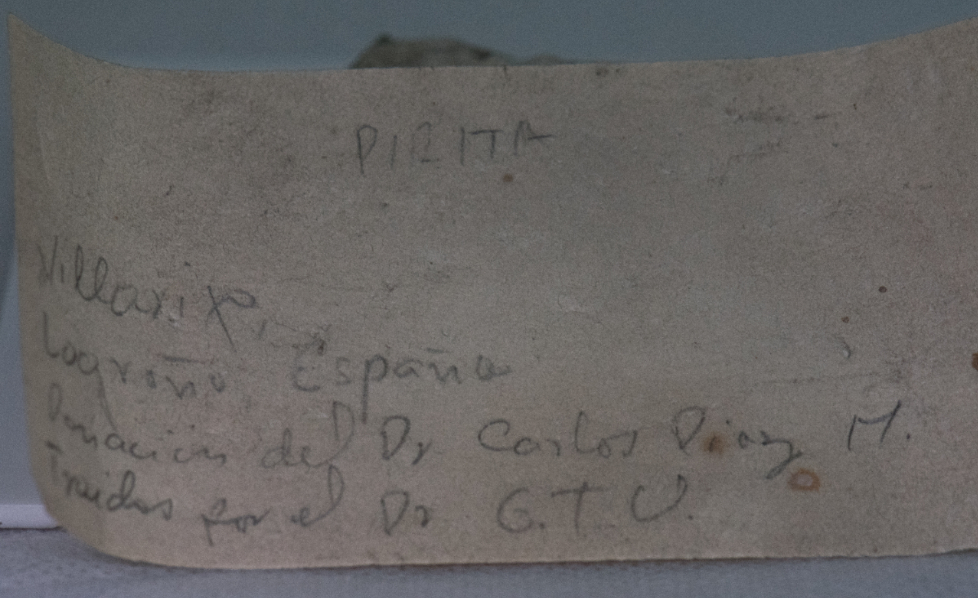 PIRITA
Villarixo,
Logroño, España
Donación del Dr Carlos Diaz M.
Traidas por el Dr G.T.U.